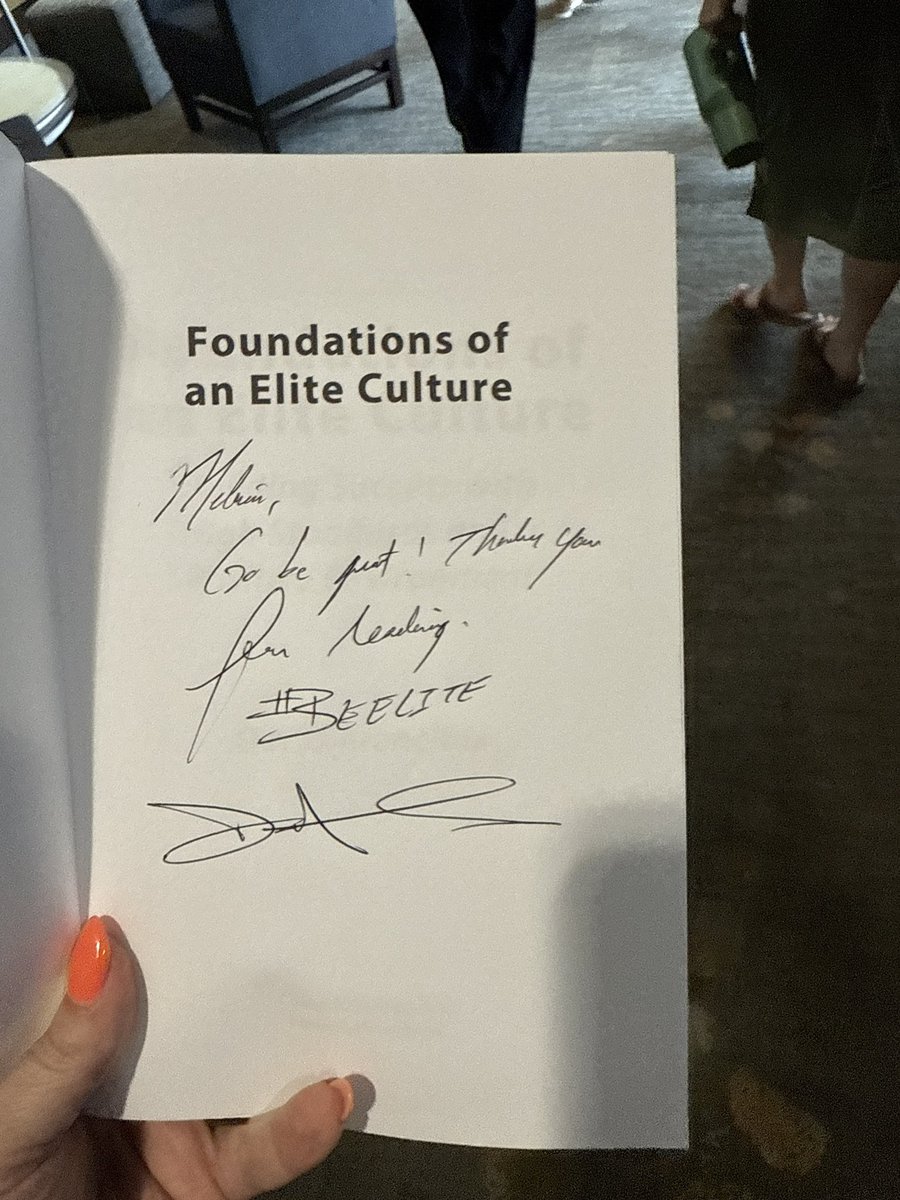 Foundations of
an Elite Culture
Go be great! Thank you
for reading.
#BEELITE